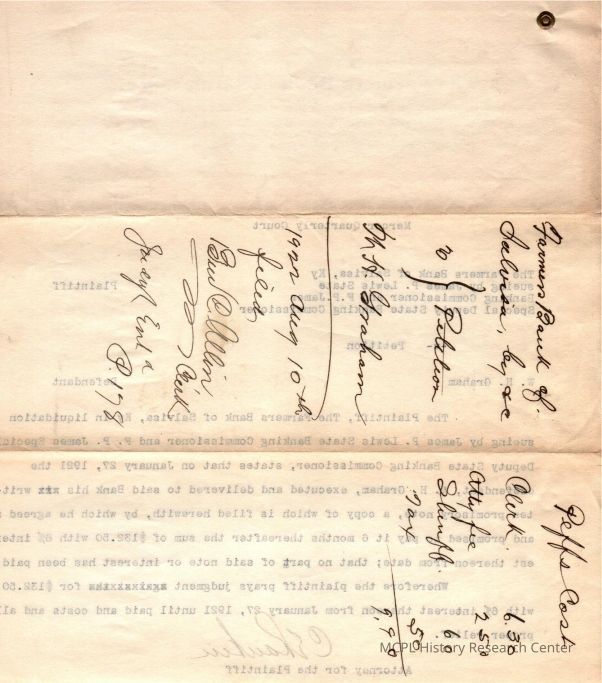 Farmers Bank of
Salvisa, by &c
v / Petition
W. H. Graham
1922 Aug 10th
filed,
Ben C. Allin
Clerk
Judgt Ent'd
P. 178
Peffs Cost
Clerk 6.30
Att fee 2.50
Sheriff 60
Tax 50
9.90
Mercer Quarterly Court
The Farmers Bank of Salvisa, Ky
sueing by James P. Lewis State
Banking Commissioner and P.P.James
Special Deputy State Banking Commissioner
Plaintiff
- Petition
W. H. Graham
Defendant
The Plaintiff, The Farmers Bank of Salvisa, Ky in liquidation
sueing by James P. Lewis State Banking Commissioner and P. P. James Special
Deputy State Banking Commissioner, states that on January 27, 1921 the
defendant, W. H. Graham, executed and delivered to said Bank his writ
ten promissory note, a copy of which is filed herewith, by which he agreed
and promised to pay it 6 months thereafter the sum of $132.50 with 6% inter
est thereon from date; that no part of said note or interest has been paid
Wherefore the plaintiff prays judgment for $132.50
with 6% interest thereon from January 27, 1921 until paid and costs and all
proper relief.
Attorney for the Plaintiff
MCPL History Research Center